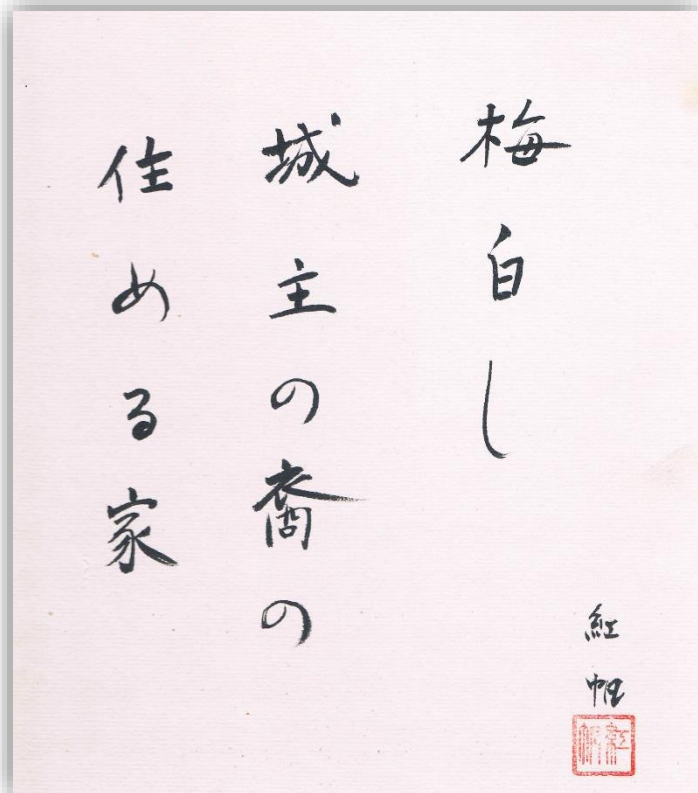 梅白し
城主の裔の
住める家
紅帆